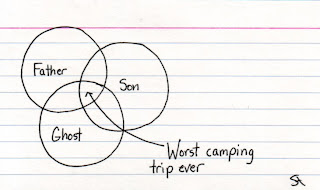 Father
Son
Ghost
Worst camping
trip ever